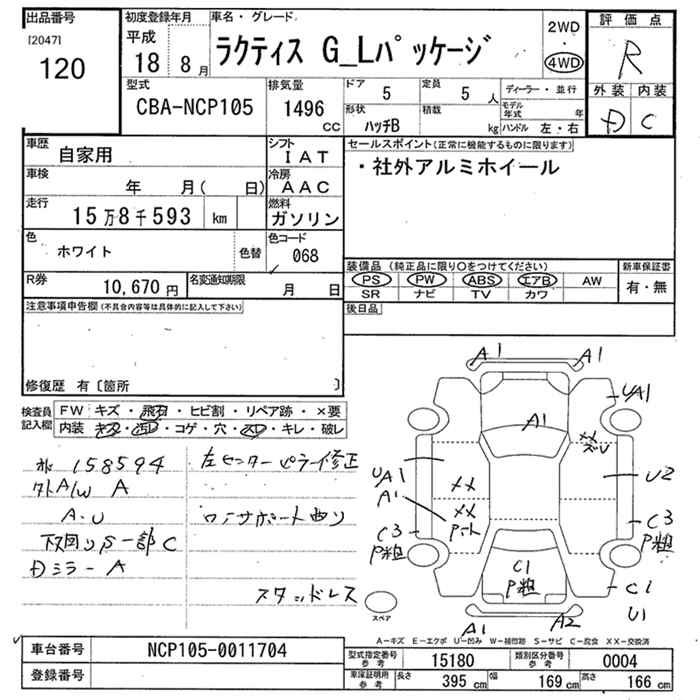 出品番号
[2047]
120
初度登録年月
平成
18 8月
車名・グレード
ラクティス G_Lパッケージ
2WD
・
4WD
評価点
R
外装 内装
D C
型式
CBA-NCP105
排気量
1496
CC
ドア
5
定員
5 人
形状
ハッチB
積載
kg
ディーラー・並行
モデル年式 年
ハンドル 左・右
車歴
自家用
シフト
IAT
車検
年 月( 日)
冷房
AAC
走行
15万8千593 km
燃料
ガソリン
色
ホワイト
色替
色コード
068
R券
10,670 円
名変通知期限
月 日
セールスポイント(正常に機能するものに限ります)
・社外アルミホイール
装備品 (純正品に限り○をつけてください)
PS PW ABS エアB AW
SR ナビ TV カワ
新車保証書
有・無
後日品
注意事項申告欄(不具合内容等は具体的に記入して下さい)
修復歴 有〔箇所 〕
検査員
記入欄
FW キズ・飛石・ヒビ割・リペア跡・×要
内装 キズ・汚レ・コゲ・穴・スレ・キレ・破レ
158594
外A/W A
A・U
下回りS一部C
Dミラー A
左センターピラー修正
スタッドレス
A1 A1
UA1
A1
XX
ズレ
UA1
A1
XX
XX
Pート
U2
C3
P粗
C3
P粗
C1
P粗
C1
U1
A1 A2
スペア
A-キズ E-エクボ U-凹み W-補修跡 S-サビ C-腐食 XX-交換済
車台番号
NCP105-0011704
登録番号
型式指定番号
参考
15180
類別区分番号
参考
0004
車庫証明用
参考
長さ 395 cm
幅 169 cm
高さ 166 cm